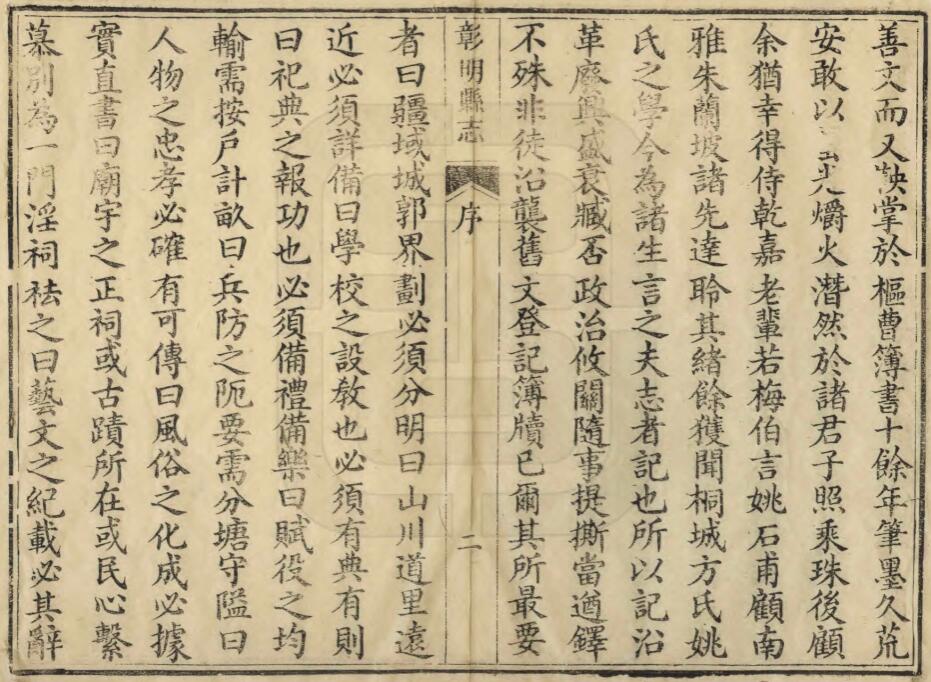 善文而又鞅掌於樞曹簿書十餘年筆墨久荒
安敢以光爝火潛然於諸君子照乘珠後顧
余猶幸得侍乾嘉老輩若梅伯言姚石甫顧南
雅朱蘭坡諸先達聆其緒餘獲聞桐城方氏姚
氏之學今為諸生言之夫志者記也所以記沿
革廢興盛衰臧否政治攸關隨事提撕當遒鐸
不殊非徒沿襲舊文登記簿牘已爾其所最要
彰明縣志 序 二
者曰疆域城郭界劃必須分明曰山川道里遠
近必須詳備曰學校之設教也必須有典有則
曰祀典之報功也必須備禮備樂曰賦役之均
輸需按戶計畝曰兵防之阨要需分塘守隘曰
人物之忠孝必確有可傳曰風俗之化成必據
實直書曰廟宇之正祠或古蹟所在或民心繫
慕別為一門淫祠祛之曰藝文之紀載必其辭